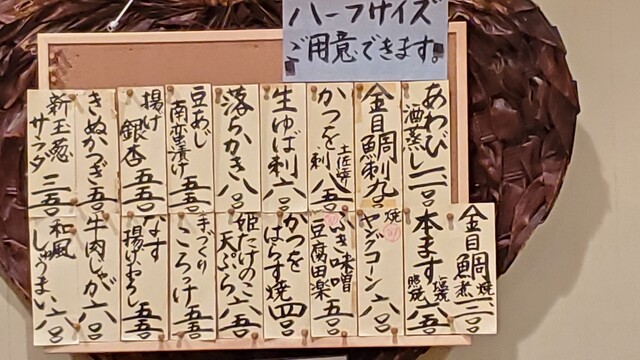 ハーフサイズ
ご用意できます。
あわび酒蒸し 一二〇〇
金目鯛刺 九五〇
かつを刺 土佐造り 八五〇
生ゆば刺 六〇〇
落らかき 八〇〇
豆あじ南蛮漬け 五五〇
揚げ銀杏 五五〇
きぬかつぎ 五五〇
新玉葱サラダ 三五〇
金目鯛 焼 煮
本ます 塩焼 照焼 八五〇
焼ヤングコーン 六〇〇
ふき味噌豆腐田楽 五五〇
かつをはらす焼 四〇〇
姫たけのこ天ぷら 六五〇
手づくりころっけ 五五〇
なす揚げおろし 五五〇
牛肉じゃが 六〇〇
和風しゅうまい 六〇〇